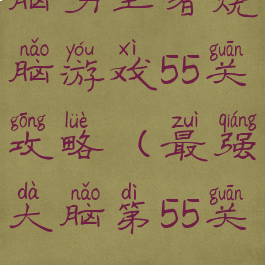 nǎo yóu xì guān
脑游戏55关
gōng lüè zuì qiáng
攻略(最强
dà nǎo dì guān
大脑第55关